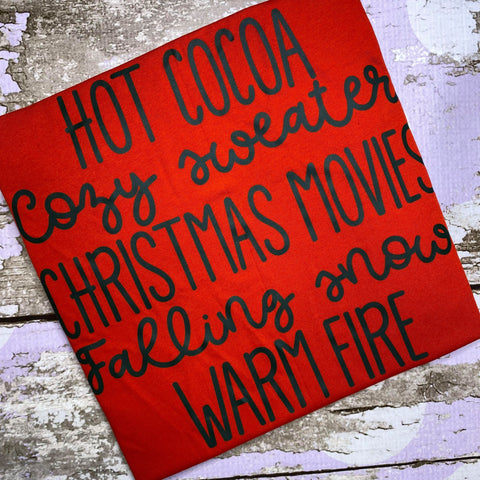 HOT COCOA
Cozy sweater
CHRISTMAS MOVIES
Falling snow
WARM FIRE